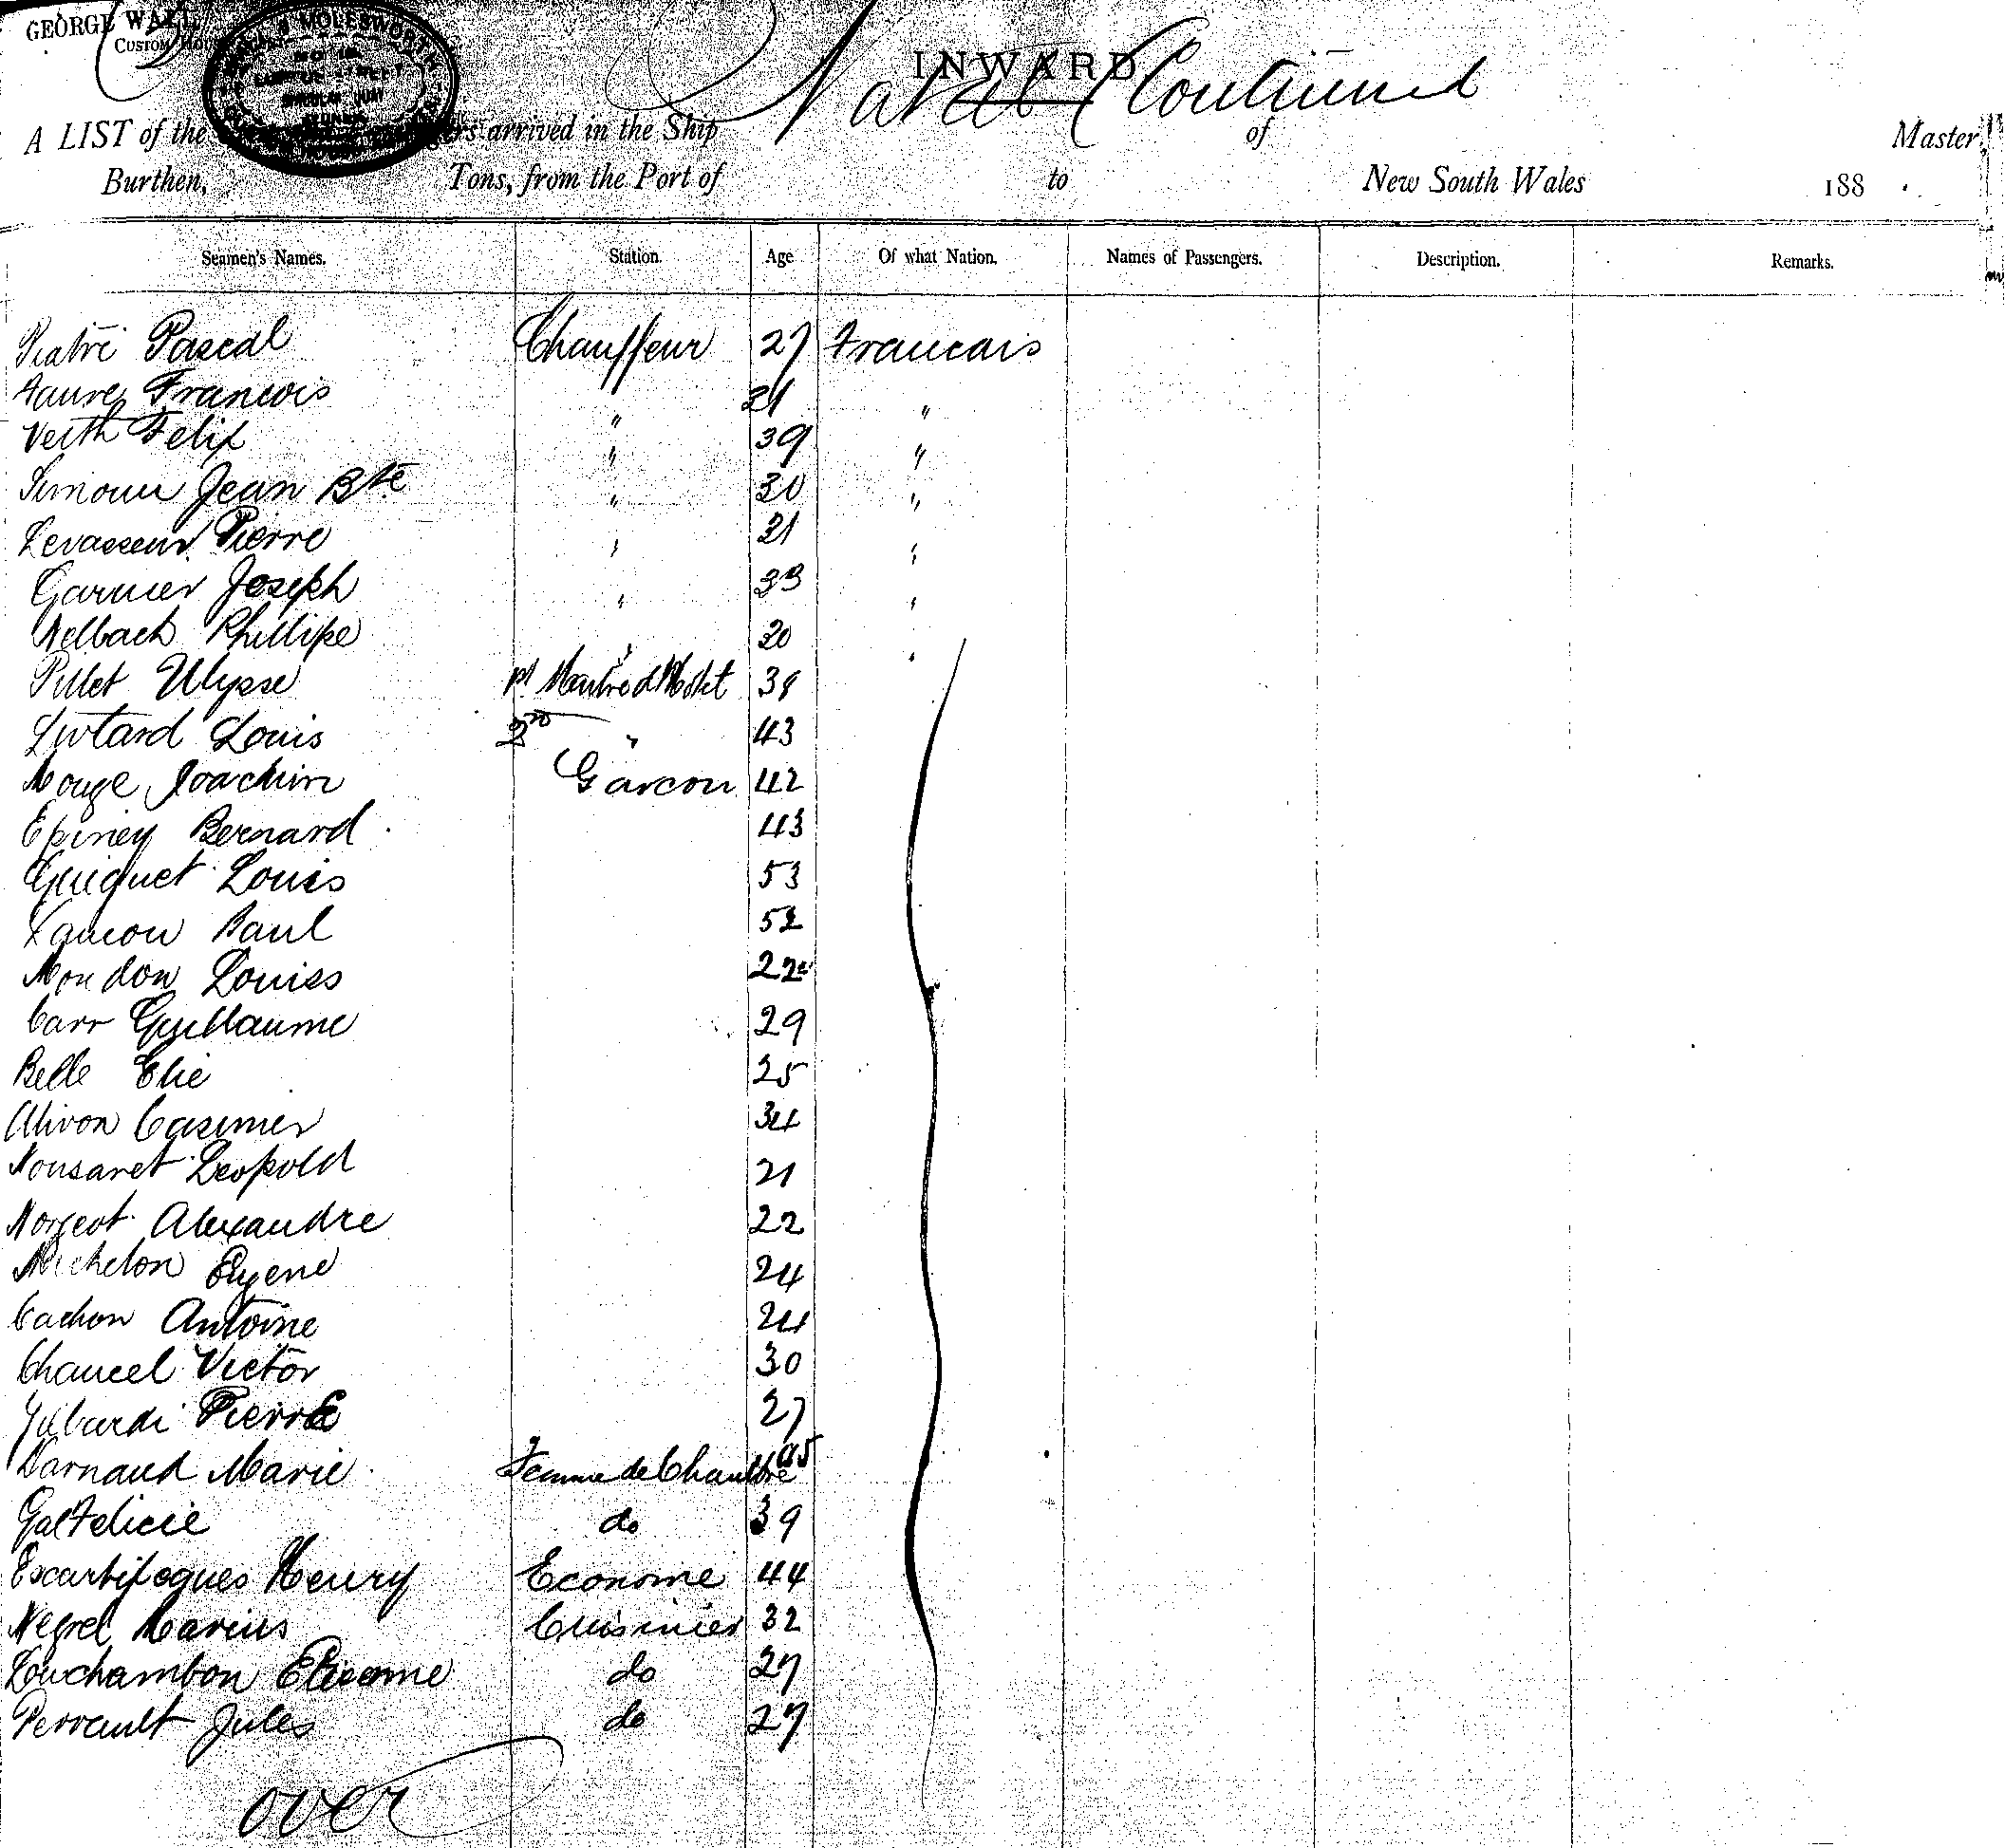 GEORGE WALL
CUSTOM HOU
MOLESWORTH
INWARD
Natal (Continued
A LIST of the ers arrived in the Ship of Master,
Burthen, Tons, from the Port of to New South Wales 188 .
Seamen's Names. Station. Age Of what Nation. Names of Passengers. Description. Remarks.
Pascal Chauffeur 27 Francais
Faure Francois 21
" "
Veith Felix 39
" "
Simoni Jean Bte 30
" "
Levasseur Pierre 31
" "
Garnier Joseph 33
" "
Melbach Phillipe 20
" "
Pillet Ulysse Maitre d'Hotel 38
Liotard Louis 2nd " 43
Mouge Joachim Garcon 42
Epiney Bernard 43
Guiguet Louis 53
Paul 52
Mondon Louiss 22
Carr Guillaume 29
Belle Elie 25
Alivon Casimer 34
Monsaret Leopold 21
Morgeot Alexandre 22
Michelon Eugene 24
Cachon Antoine 24
Chancel Victor 30
Gilbardi Pierre 27
Darnaud Marie Femme de Chambre 45
Gal Felicie do 39
Escartifegues Henry Econome 44
Negrel Marius Cuisinier 32
Louchambon Etienne do 27
Perrault Jules do 27
over